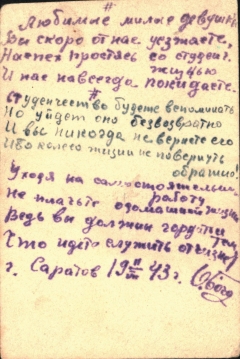 Любимые милые девушки
Вы скоро от нас уезжаете,
Наспех простясь со студен.
жизнью
И нас навсегда покидаете.
Студенчество будете вспоминать
Но уйдет оно безвозвратно
И вы никогда не вернете его
Ибо колесо жизни не повернуть
обратно!
Уходя на самостоятельн.
работу
Не плачьте о домашней жизни
Ведь вы должны гордиться тем
Что идете служить отчизне
г. Саратов 19 43 г.